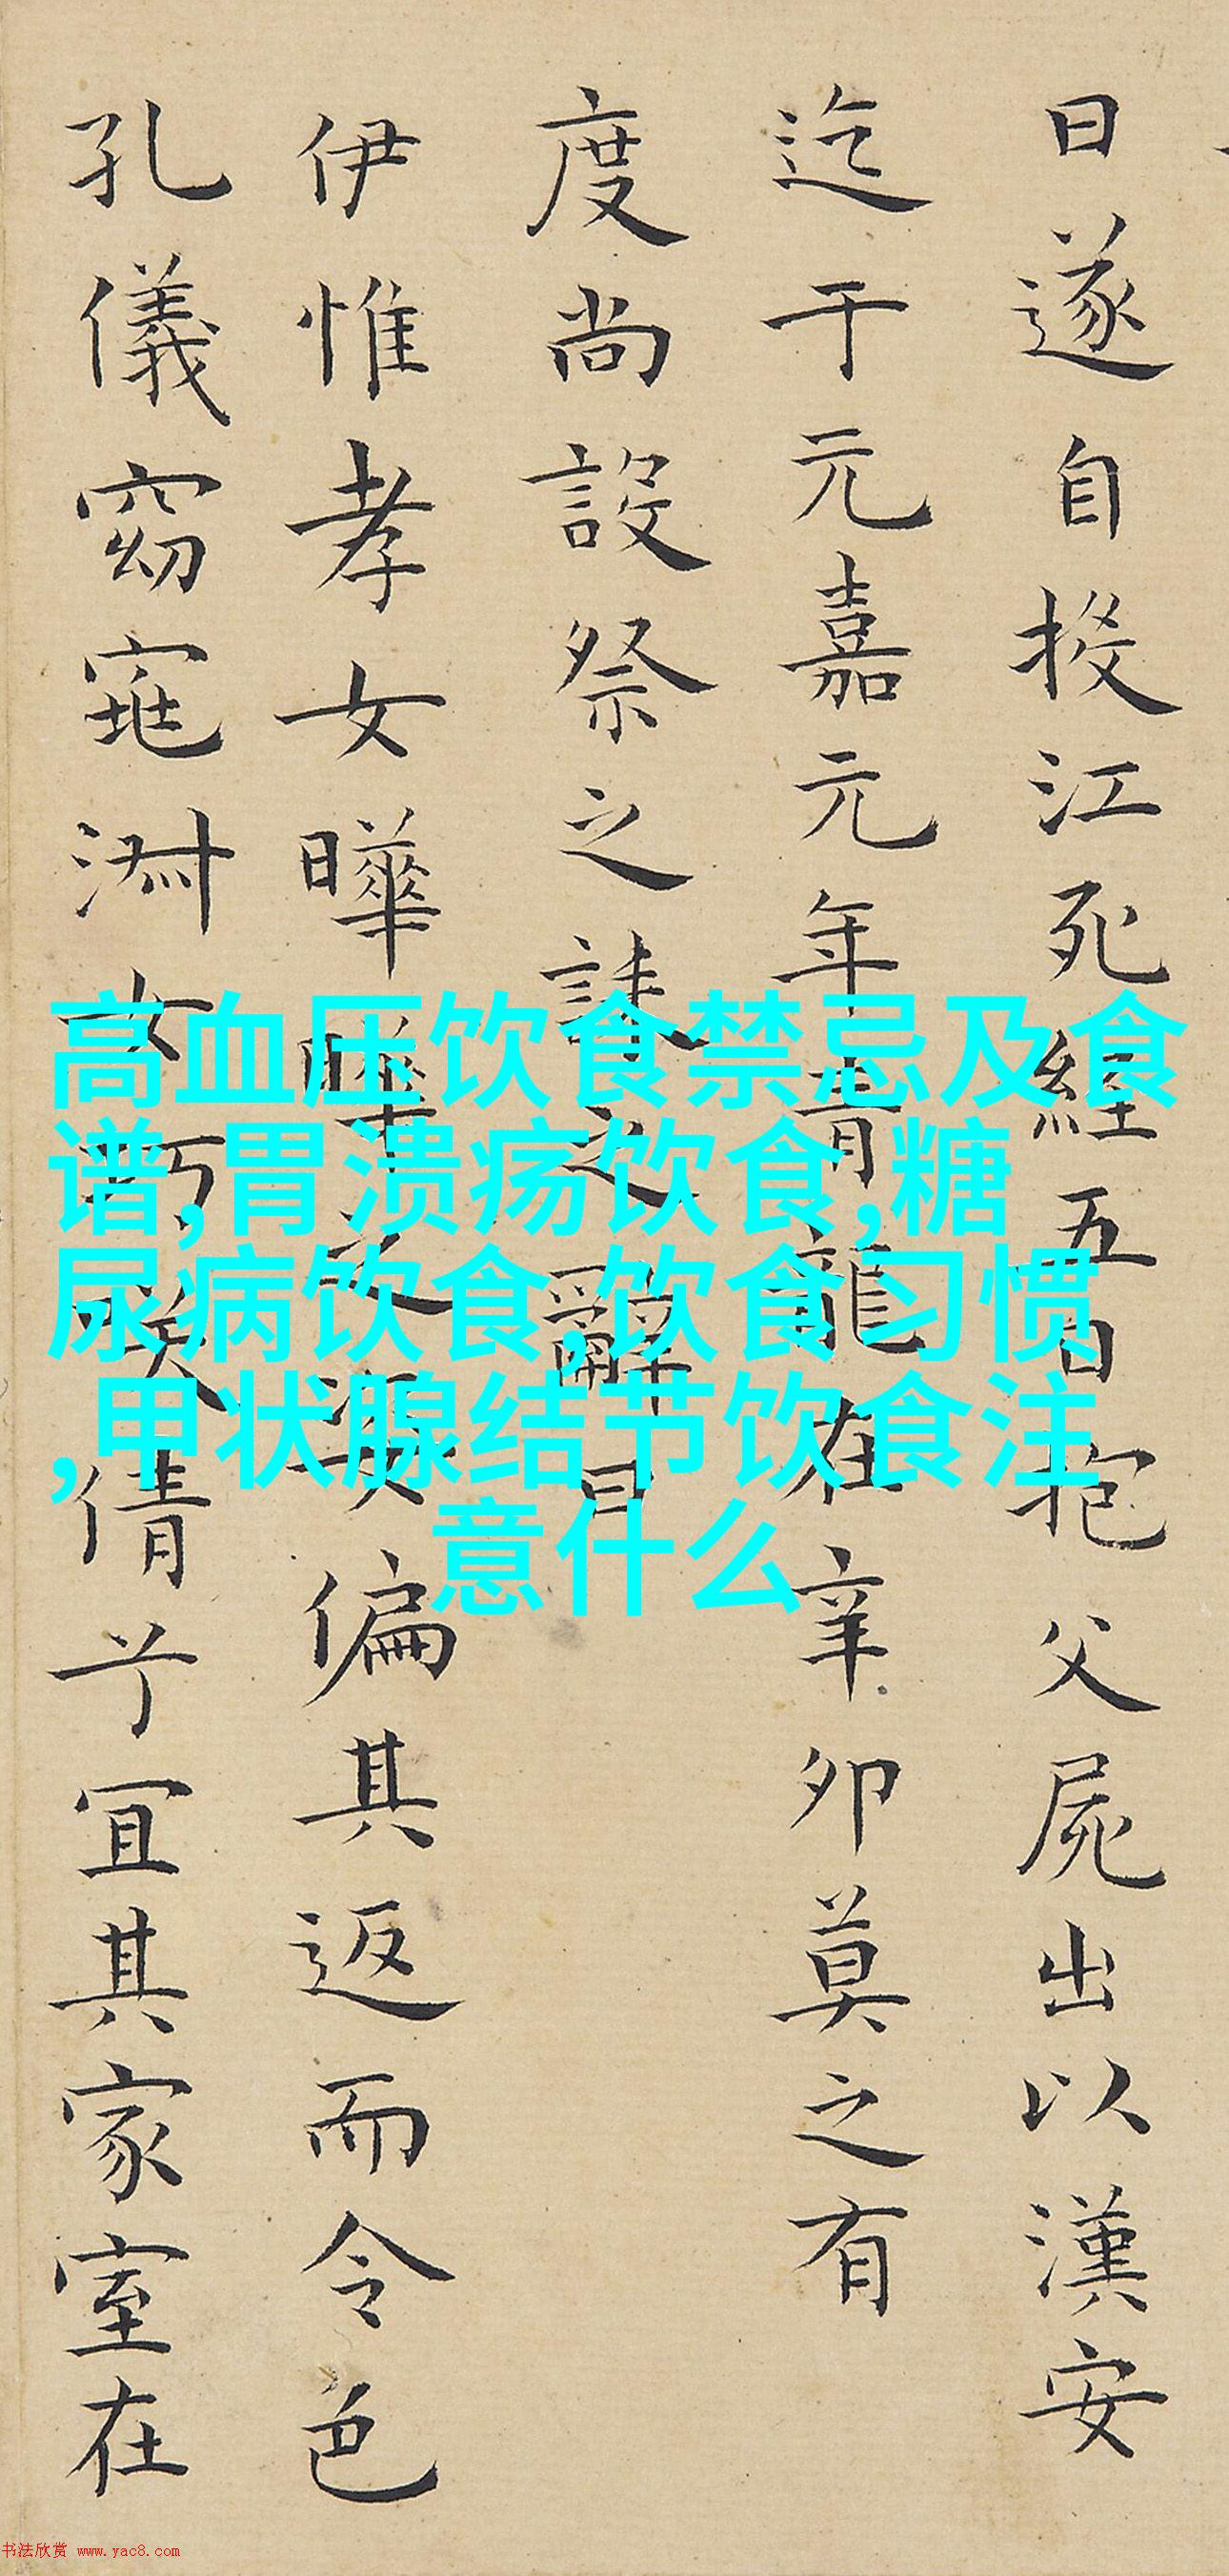 日遂自投江死經五日抱父屍出以漢安
迄于元嘉元年青龍在辛卯莫之有
度尚設祭之誄之辭曰
伊惟孝女曄曄之姿偏其返而令色
孔儀窈窕淑女巧咲倩兮宜其家室在
高血压饮食禁忌及食
谱,胃溃疡饮食,糖
尿病饮食,饮食习惯
,甲状腺结节饮食注
意什么
书法欣赏 www.yac8.com